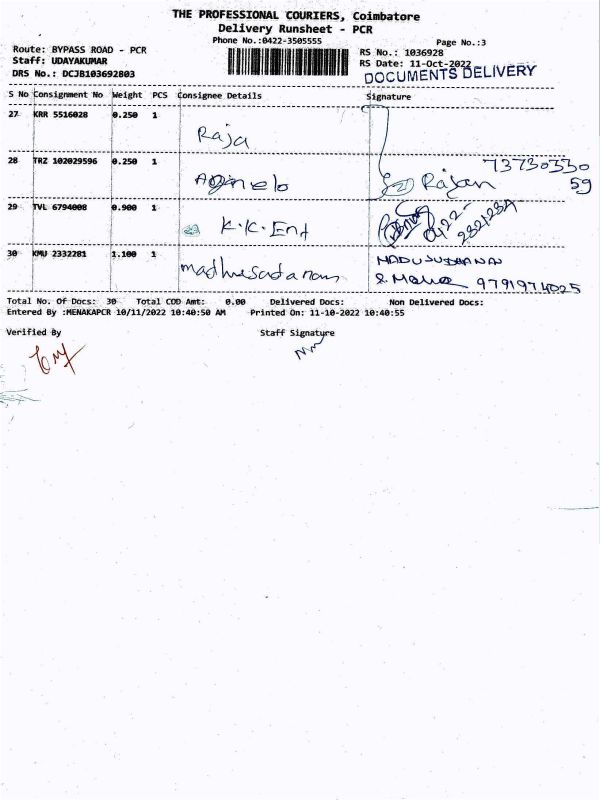 THE PROFESSIONAL COURIERS, Coimbatore
Delivery Runsheet - PCR
Phone No.:0422-3505555
Page No.:3
Route: BYPASS ROAD - PCR
RS No.: 1036928
Staff: UDAYAKUMAR
RS Date: 11-Oct-2022
DRS No.: DCJB103692803
DOCUMENTS DELIVERY
S No Consignment No Weight PCS Consignee Details Signature
27 KRR 5516028 0.250 1
Raja
28 TRZ 102029596 0.250 1
73730330
59
Rajan
29 TVL 6794008 0.900 1
K.K. Ent
0422-
30 KMU 2332281 1.100 1
madhusudanan
9791974025
Total No. Of Docs: 30 Total COD Amt: 0.00 Delivered Docs: Non Delivered Docs:
Entered By :MENAKAPCR 10/11/2022 10:40:50 AM Printed On: 11-10-2022 10:40:55
Verified By Staff Signature